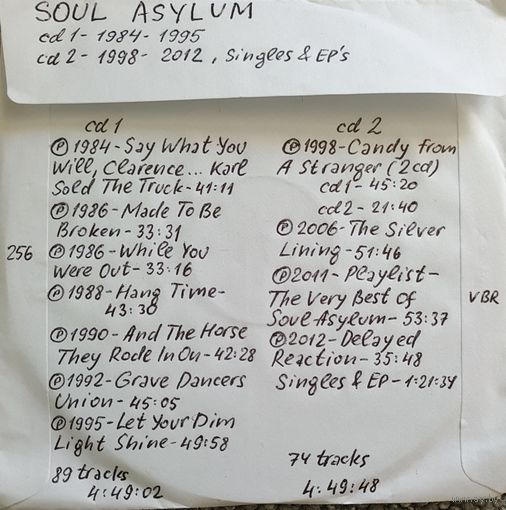 SOUL ASYLUM
cd 1 - 1984 - 1995
cd 2 - 1998 - 2012, Singles & EP's
cd 1
Ⓟ 1984 - Say What You
Will, Clarence... Karl
Sold The Truck - 41:11
Ⓟ 1986 - Made To Be
Broken - 33:31
256
Ⓟ 1986 - While You
Were Out - 33:16
Ⓟ 1988 - Hang Time -
43:30
Ⓟ 1990 - And The Horse
They Rode In On - 42:28
Ⓟ 1992 - Grave Dancers
Union - 45:05
Ⓟ 1995 - Let Your Dim
Light Shine - 49:58
89 tracks
4:49:02
cd 2
Ⓟ 1998 - Candy from
A Stranger (2cd)
cd1 - 45:20
cd2 - 21:40
Ⓟ 2006 - The Silver
Lining - 51:46
Ⓟ 2011 - Playlist -
The Very Best of
Soul Asylum - 53:37
VBR
Ⓟ 2012 - Delayed
Reaction - 35:48
Singles & EP - 1:21:34
74 tracks
4:49:48